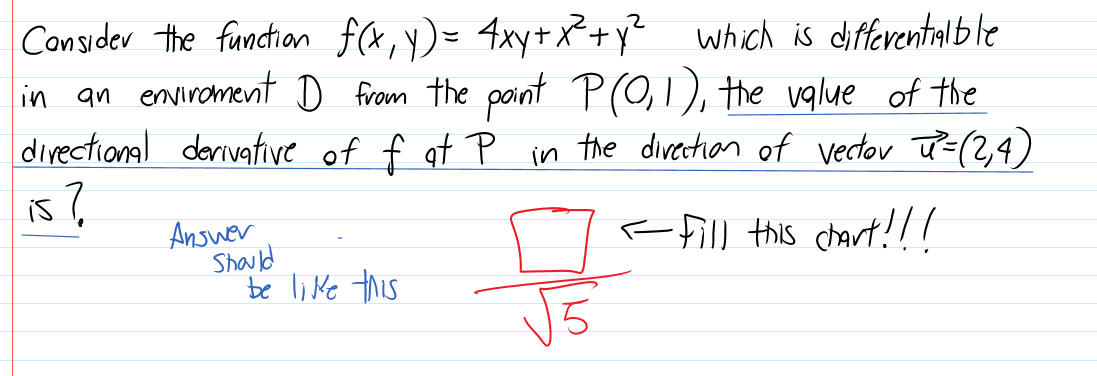 Consider the function f(x,y)= 4xy+x²+y² which is differentialble
in an enviroment D from the point P(0,1), the value of the
directional derivative of f at P in the direction of vector u⃗=(2,4)
is?
Answer
should
be like this
□/√5
← Fill this chart!!!